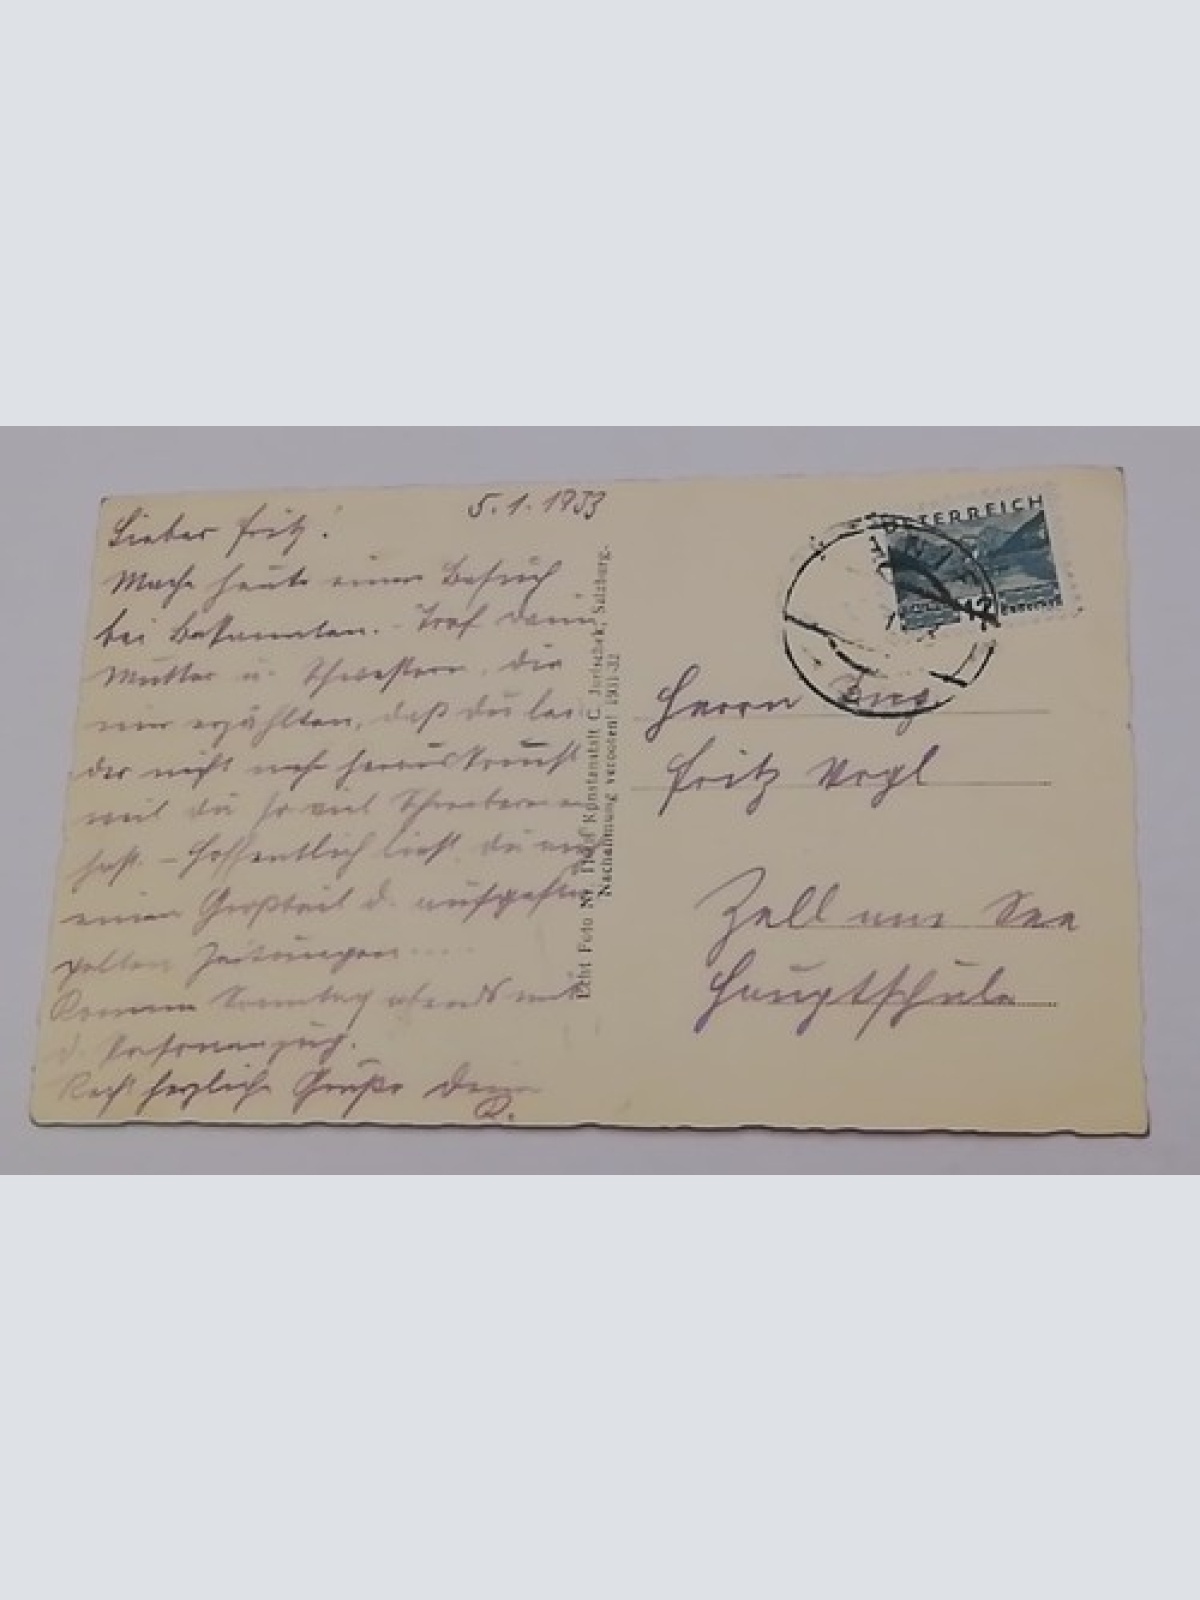 5.1.1933
Lieber Fritz!
Mache heute einen Besuch
bei Bekannten. - Traf deine
Mutter u. Schwestern, die
mir erzählten, daß du lei-
der nicht mehr herauskommst
weil du so viel
hast. - Hoffentlich liest du noch
einen Großteil d. aufgesta-
pelten Zeitungen....
Komme Sonntag abends mit
d. Personenzug.
Recht herzliche Grüße Dein
R.
Echt Foto Nr. Kunstanstalt C. Jurischek, Salzburg.
Nachahmung verboten! 1931-32
ÖSTERREICH
12
GROSCHEN
Herrn Ing.
Fritz Vogl
Zell am See
Hauptschule